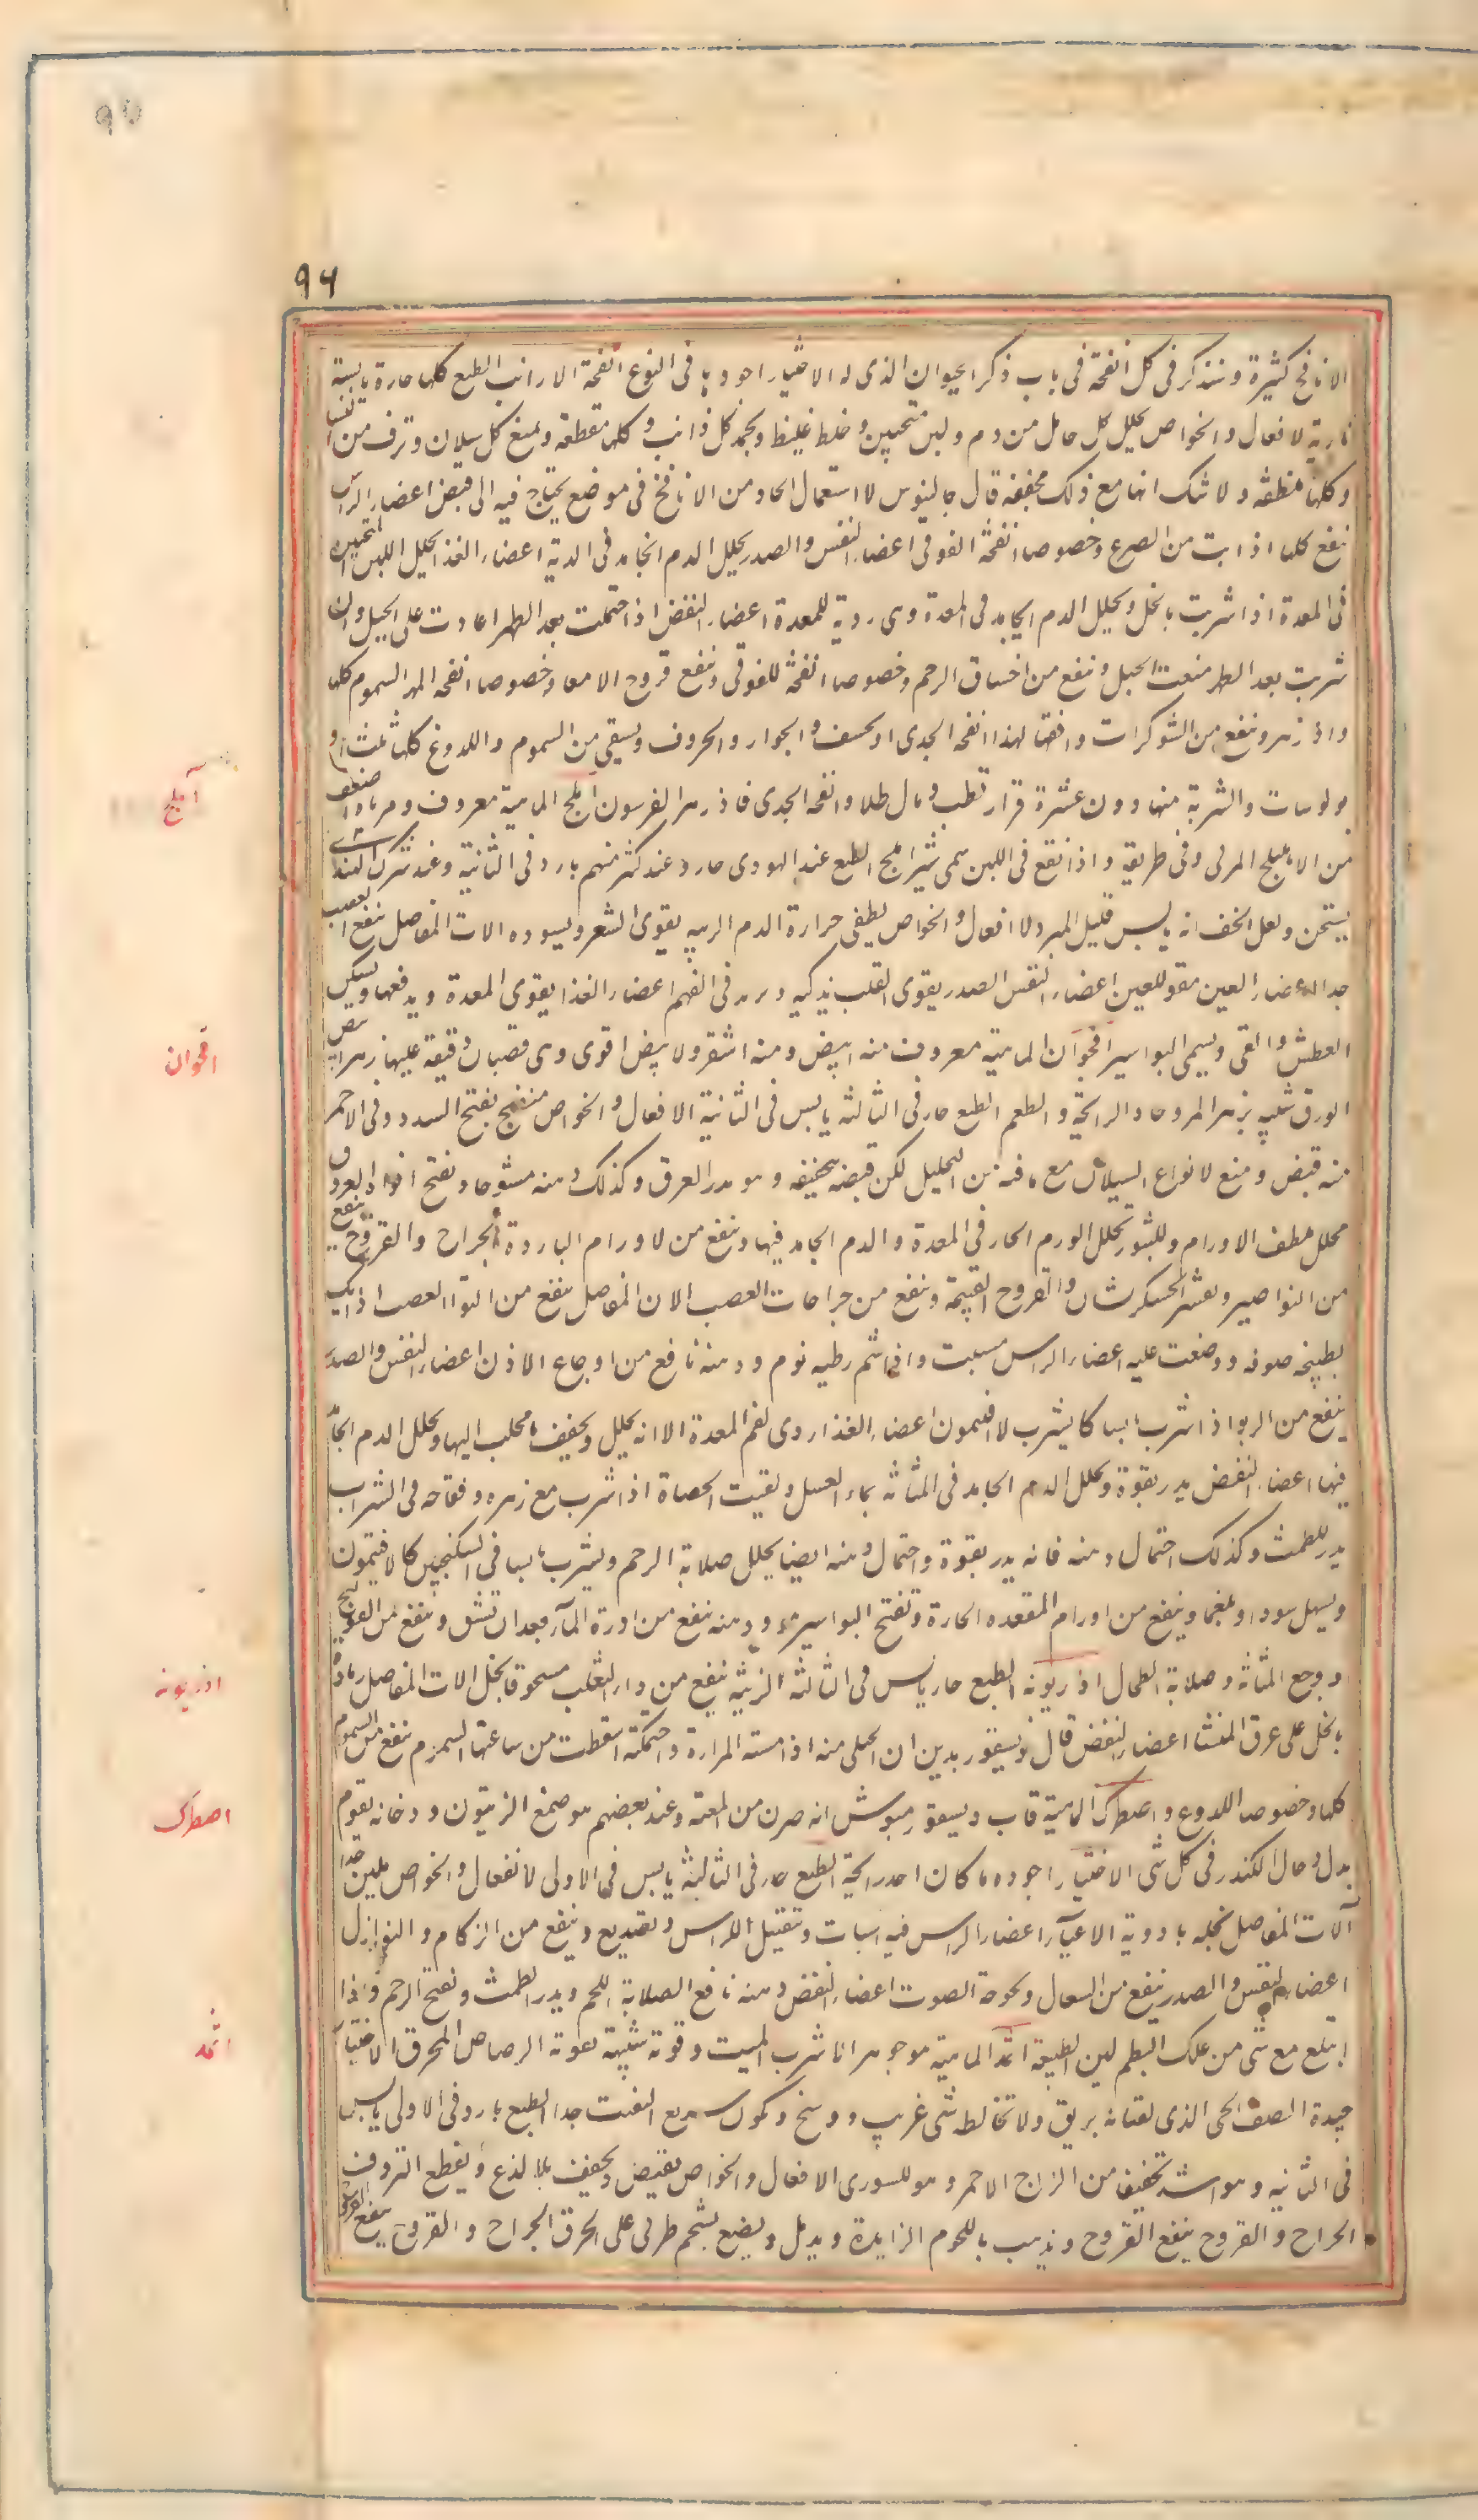 ٩٥
٩٤
الانافح كثيرة و نذكر فى كل انفحة فى باب ذكر الحيوان الذى له الاختيار اجودها فى النوع انفحة الارانب الطبع كلها حارة يابسة
نارية لافعال و الخواص يحلل كل جامد من دم و لبن متجبن و خلط غليظ و يجمد كل ذائب و كلها مقطعة و يمنع كل سيلان و نزف من النساء
و كلها ملطفة و لا شك انها مع ذلك مجففة قال جالينوس لا استعمال الحاد من الانافح فى موضع يحتاج فيه الى قبض اعضاء الراس
ينفع كلها اذا شربت من الصرع و خصوصا انفحة القوقى اعضاء النفس و الصدر يحلل الدم الجامد فى الرية اعضاء الغذا يحلل اللبن المتجبن
فى المعدة اذا شربت بالخل و يحلل الدم الجامد فى المعدة و هى ردية للمعدة اعضاء النفض اذا احتملت بعد الطهر اعادت على الحبل و ان
شربت بعد الطهر منعت الحبل و ينفع من اختناق الرحم و خصوصا انفحة القوقى و ينفع قروح الامعا و خصوصا انفحة المهر السموم كلها
و اذ زهر و ينفع من الشوكرات و افضلها لهذا انفحة الجدى او الخشف و الحوار و الخروف و يسقى من السموم و اللدوغ كلها ثلث او
بولوسات و الشربة منها دون عشرة قراريط و مال طلا و انفحة الجدى فاذ زهر الفرسون املج الماهية معروف و مرباه اضعف
من الاهليلج المربى و فى طريقه و اذا نقع فى اللبن سمى شيراملج الطبع عند اليهودى حار و عند كثير منهم بارد فى الثانية و عند شرك الهندى
يسخن و لعل الحق انه يابس قليل البرد لا افعال و الخواص يطفى حرارة الدم الزينه يقوى الشعر و يسوده الات المفاصل ينفع العصب
جدا اعضاء العين مقو للعين اعضاء النفس الصدر يقوى القلب يذكيه و يزيد فى الفهم اعضاء الغذا يقوى المعدة و يدبغها و يسكن
العطش و القى و يسمى البواسير اقحوان الماهية معروف منه ابيض و منه اشقر و لابيض اقوى و هى قضبان دقيقة عليها زهر ابيض
الورق شبيه بزهر المرو حاد الرايحة و الطعم الطبع حار فى الثالثة يابس فى الثانية الافعال و الخواص منضج يفتح السدد و فى الاحمر
منه قبض و منع لانواع السيلان مع ما فيه من التحليل لكن قبضه تجفيفه و هو مدر العرق و كذلك دهنه مشموما و يفتح افواه العروق
محلل ملطف الاورام و البثور يحلل الورم الحار فى المعدة و الدم الجامد فيها و ينفع من لاورام الباردة الجراح و القروح ينفع
من النواصير و يقشر الخشكريشات و القروح الخبيثة و ينفع من جراحات العصب الات المفاصل ينفع من التوا العصب اذا بل
بطبيخه صوفه و وضعت عليه اعضاء الراس مسبت و اذا شم رطبه نوم و دهنه نافع من اوجاع الاذن اعضاء النفس و الصدر
ينفع من الربو اذا شرب يابسا كما يشرب لافتيمون اعضاء الغذا ردى لفم المعدة الا انه يحلل و يجفف ما يحلب اليها و يحلل الدم الجامد
فيها اعضاء النفض يدر بقوة و يحلل الدم الجامد فى المثانة بماء العسل و يفتت الحصاة اذا شرب مع زهره و فقاحه فى الشراب
يدر للطمث و كذلك احتمال دهنه فانه يدر بقوة و احتمال دهنه ايضا يحلل صلابة الرحم و يشرب يابسا فى السكنجبين كالافتيمون
و يسهل سودا و بلغما و ينفع من اورام المقعدة الحارة و تفتح البواسير و دهنه ينفع من ادرة الماء بعد ان تشق و ينفع من القولنج
و وجع المثانة و صلابة الطحال اذريونه الطبع حار يابس فى الثالثة الزينه ينفع من داء الثعلب مسحوقا بخل الات المفاصل رماده
بالخل على عرق النسا اعضاء النفض قال ديسقوريدس ان الحبلى منه اذا مسته المراة و احتملته اسقطت من ساعتها السموم ينفع من السموم
كلها و خصوصا اللدوغ و اصطرك الماهية قال ديسقوريدوس انه ضرب من الميعة و عند بعضهم هو صمغ الزيتون و دخانه يقوم
بدل دخان الكندر فى كل شى الاختيار اجوده ما كان احد رايحة الطبع حار فى الثالثة يابس فى الاولى لافعال و الخواص ملين جدا
آلات المفاصل نخلطه بادوية الاعياء اعضاء الراس فيه اسبات و تثقيل للراس و تصديع و ينفع من الزكام و النوازل
اعضاء النفس و الصدر ينفع من السعال و بحوحة الصوت اعضاء النفض دهنه نافع لصلابة الرحم و يدر الطمث و يفتح الرحم و اذا
ابتلع مع شى من علك البطم لين الطبيعة اثمد الماهية هو جوهر الاسرب الميت و قوته شبيهة بقوة الرصاص المحرق الاختيار
جيده الصفايحى الذى لفتاته بريق و لا تخالطه شى غريب و وسخ و يكون سريع التفتت جدا الطبع بارد فى الاولى يابس
فى الثانية و هو اشد تجفيفا من الزاج الاحمر و هو للسورى الافعال و الخواص يقبض و يجفف بلا لذع و يقطع النزوف
الجراح و القروح ينفع القروح و يذهب باللحوم الزايدة و يدمل و يضع بشحم طرى على الحرق الجراح و القروح ينفع القروح
آملج
اقحوان
اذريونه
اصطرك
اثمد